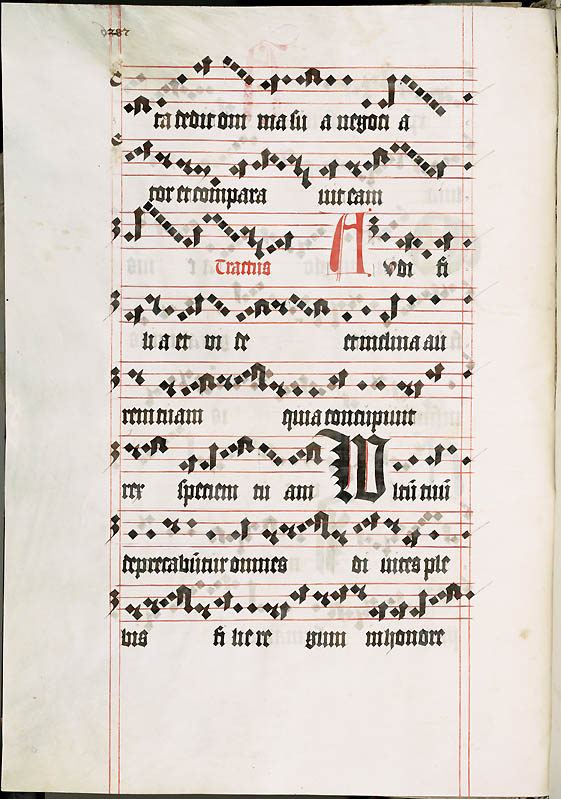 ta dedit om nia su a negoti a
tor et compara uit eam
Tractus Avdi fi
li a et vi de et inclina au
rem tuam quia concupiuit
rex speciem tu am Wltū tuū
deprecabūtur omnes di uites ple
bis fi lie re gum in honore